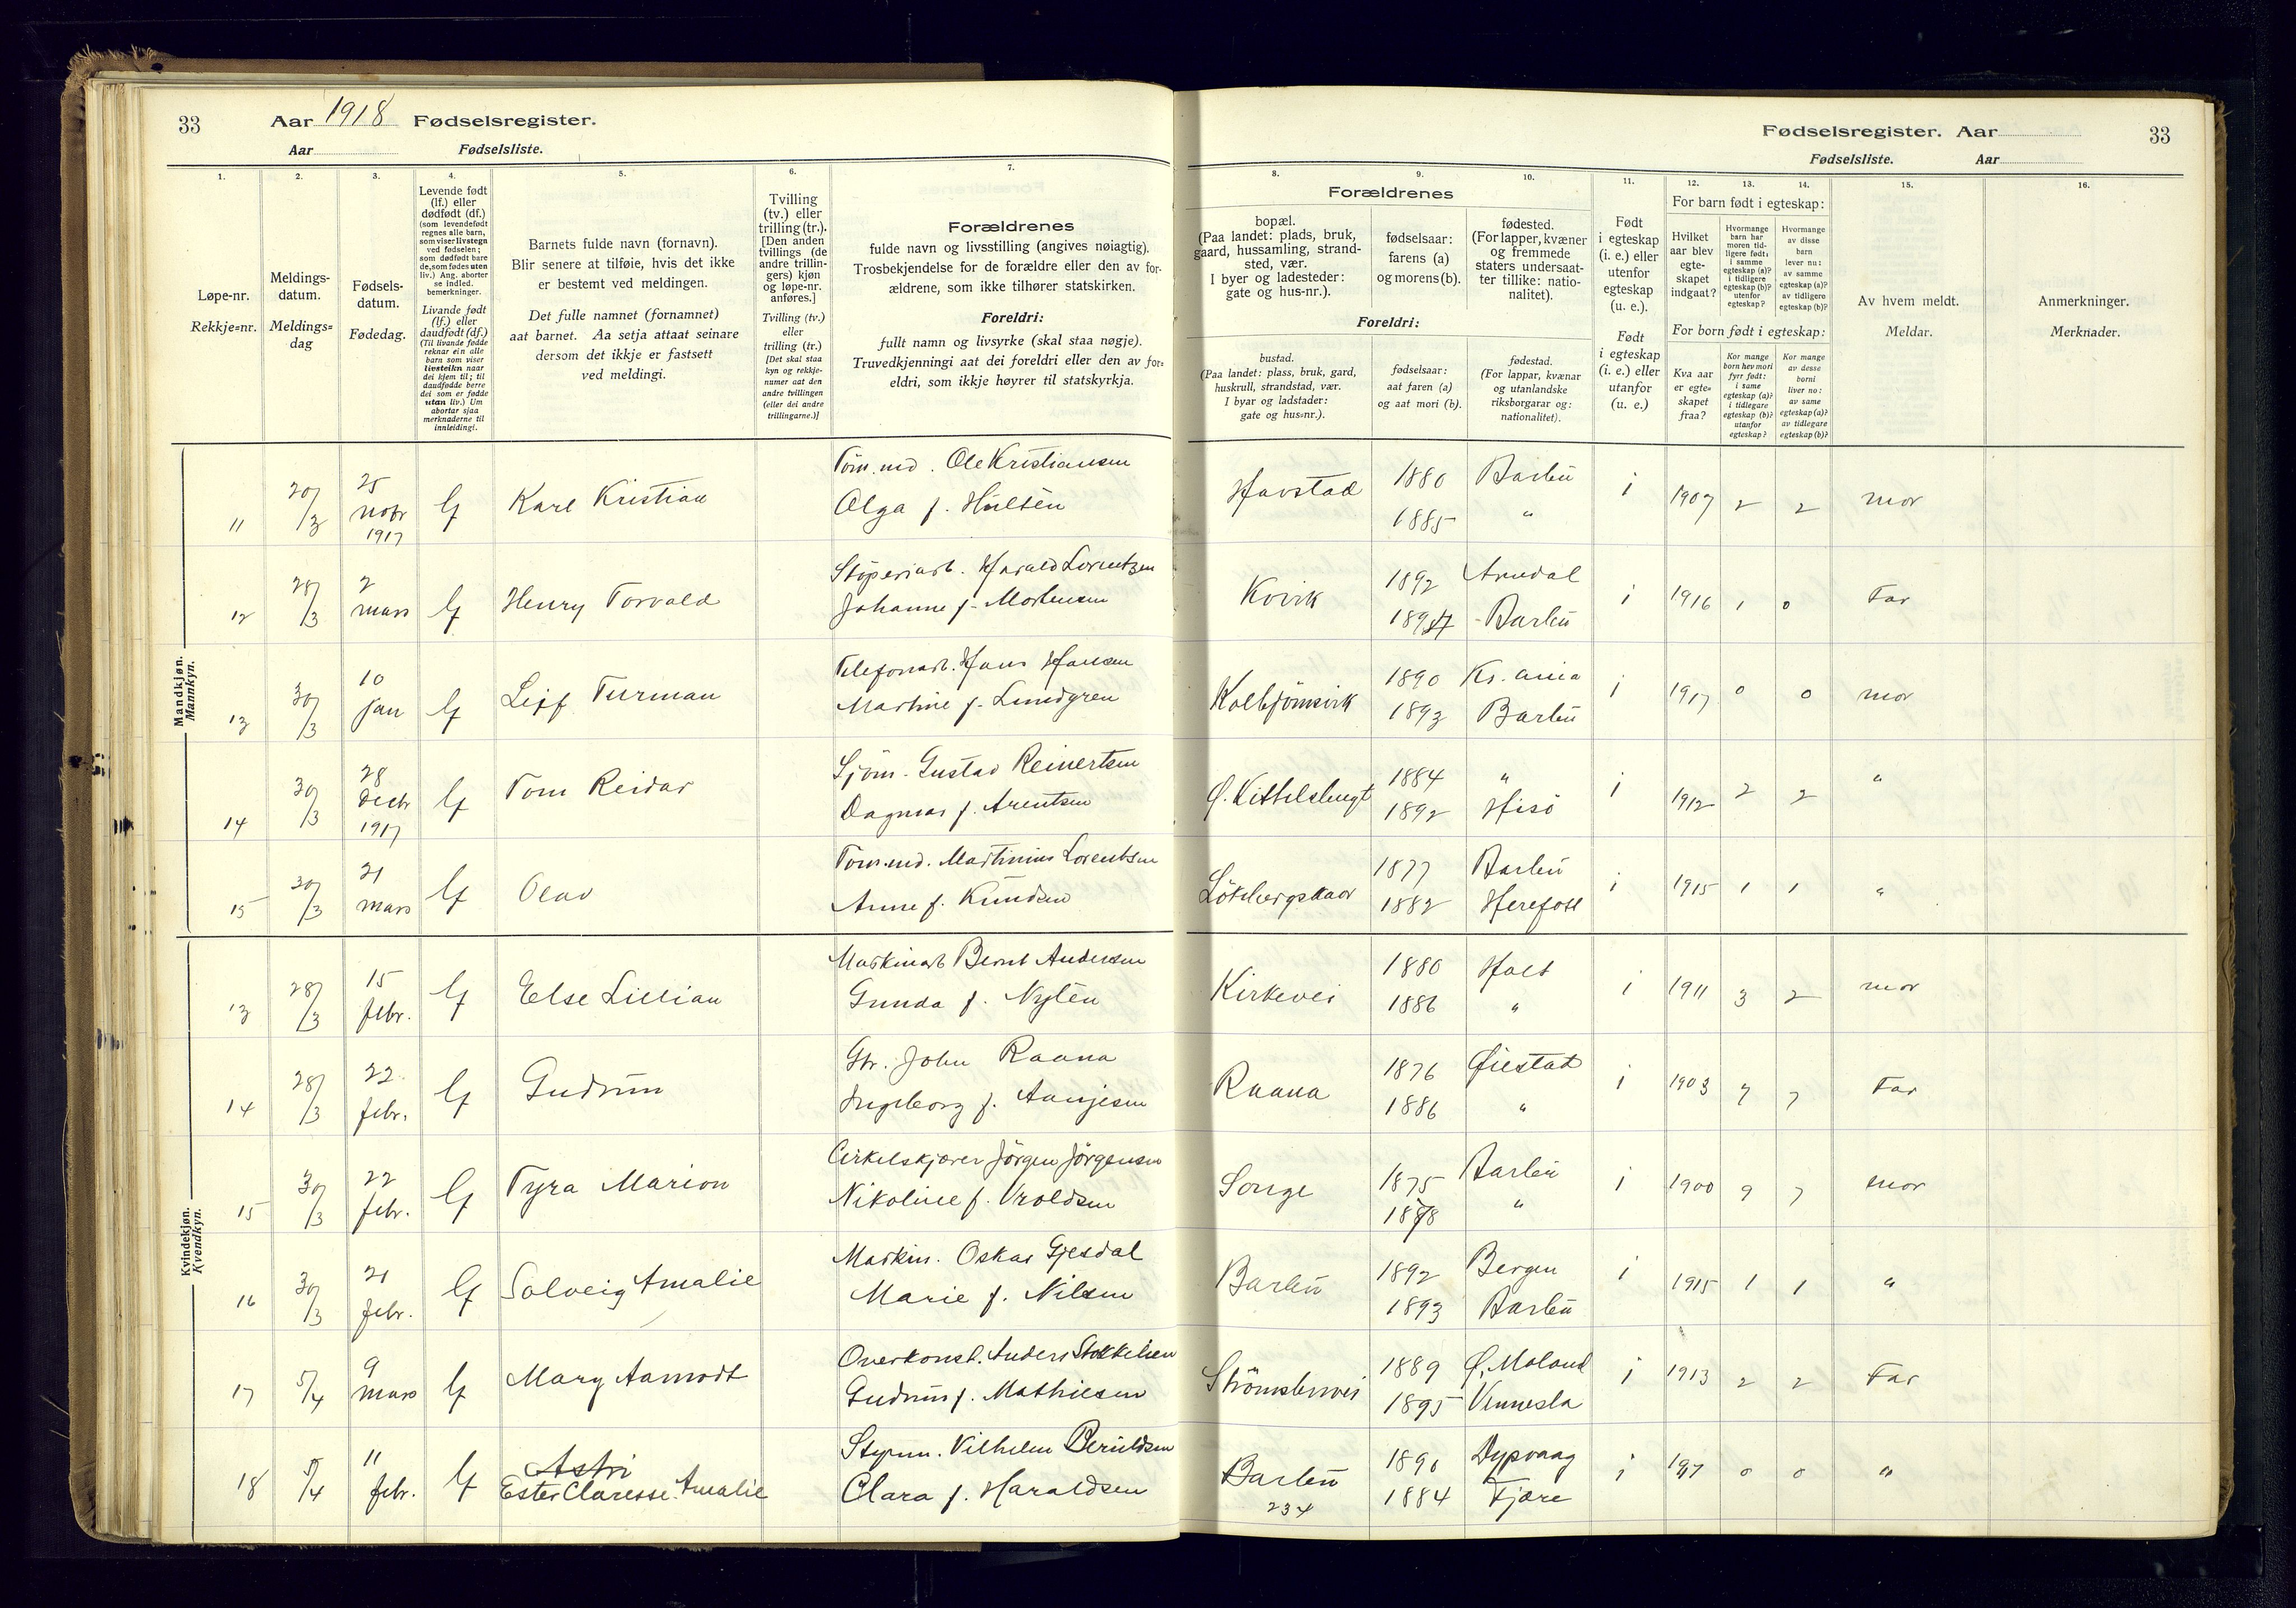 33 Aar 1918 Fødselsregister.
Aar Fødselsliste.
Fødselsregister. Aar 33
Fødselsliste. Aar
1.
Løpe-nr.
Rekkje=nr.
2.
Meldings-
datum.
Meldings=
dag
3.
Fødsels-
datum.
Fødedag.
4.
Levende født
(lf.) eller
dødfødt (df.)
(som levendefødt
regnes alle barn,
som viser livstegn
ved fødselen;
som dødfødt bare
de, som fødes uten
liv.) Ang. aborter
se indled.
bemerkninger.
Livande født
(lf.) eller
daudfødt (df.)
(Til livande fødde
reknar ein alle
barn som viser
livsteikn naar
dei kjem til; til
daudfødde berre
dei som er fødde
utan liv.) Um
abortar sjaa
merknaderne til
innleidingi.
5.
Barnets fulde navn (fornavn).
Blir senere at tilføie, hvis det ikke
er bestemt ved meldingen.
Det fulle namnet (fornamnet)
aat barnet. Aa setja attaat seinare
dersom det ikkje er fastsett
ved meldingi.
6.
Tvilling
(tv.) eller
trilling (tr.).
[Den anden
tvillings (de
andre trillin-
gers) kjøn
og løpe-nr.
anføres.]
Tvilling (tv.)
eller
trilling (tr.)
[Det skal staa
kyn og rekkje-
numer aat den
andre tvillingen
(eller dei andre
trillingarne.)]
7.
Forældrenes
fulde navn og livsstilling (angives nøiagtig).
Trosbekjendelse for de forældre eller den av for-
ældrene, som ikke tilhører statskirken.
Foreldri:
fullt namn og livsyrke (skal staa nøgje).
Truvedkjenningi aat dei foreldri eller den av for=
eldri, som ikkje høyrer til statskyrkja.
Forældrenes
8.
bopæl.
(Paa landet: plads, bruk,
gaard, hussamling, strand-
sted, vær.
I byer og ladesteder:
gate og hus-nr.).
9.
fødselsaar:
farens (a)
og morens (b).
10.
fødested.
(For lapper, kvæner
og fremmede
staters undersaat-
ter tillike: natio-
nalitet).
Foreldri:
bustad.
(Paa landet: plass, bruk, gard,
huskrull, strandstad, vær.
I byar og ladstader:
gate og hus=nr.).
fødselsaar:
aat faren (a)
og aat mori (b).
fødestad.
(For lappar, kvænar
og utanlandske
riksborgarar og:
nationalitet).
11.
Født
i egteskap
(i. e.) eller
utenfor
egteskap
(u. e.).
Født
i egteskap
(i. e.) eller
utanfor
(u. e.)
For barn født i egteskap:
12.
Hvilket
aar blev
egte-
skapet
indgaat?
13.
Hvormange
barn har
moren tid-
ligere født:
i samme
egteskap (a)?
i tidligere
egteskap (b)?
utenfor
egteskap?
14.
Hvormange
av disse
barn
lever nu:
av samme
egteskap (a)?
av tidligere
egteskap (b)?
For born født i egteskap:
Kva aar
er egte=
skapet
fraa?
Kor mange
born hev mori
fyrr født:
i same
egteskap (a)?
i tidlegare
egteskap (b)?
utanfor
egteskap?
Kor mange
av desse
borni
liver no:
av same
egteskap (a)?
av tidlegare
egteskap (b)?
15.
Av hvem meldt.
Meldar.
16.
Anmerkninger.
Merknader.
Mandkjøn.
Mannkyn.
11 20/3 25 novbr 1917 lf Karl Kristian Tøm.md. Ole Kristiansen
Olga f. Hultén
Havstad 1880 Barbu i 1907 2 2 mor
1885 "
12 28/3 2 mars lf Henry Torvald Støperiarb. Harald Lorentzen
Johanne f. Mortensen
Kvivik 1892 Arendal i 1916 1 0 Far
1894 Barbu
13 30/3 10 jan lf Leif Turman Telefonarb. Hans Hansen
Martine f. Lundgren
Kolbjørnsvik 1890 Kr.ania i 1917 0 0 mor
1893 Barbu
14 30/3 28 decbr 1917 lf Tom Reidar Sjøm. Gustav Reinertsen
Dagmar f. Arentsen
Ø. Kittelsbugt 1884 " i 1912 2 2 "
1892 Hisø
15 30/3 21 mars lf Olav Tøm.md. Martinius Lorentsen
Anne f. Knudsen
1877 Barbu i 1915 1 1 "
1882 Herefoss
Kvindekjøn.
Kvendkyn.
13 28/3 15 febr. lf Else Lillian Maskinarb Bernt Andersen
Gunda f. Nylén
Kirkevei 1880 Holt i 1911 3 2 mor
1886 "
14 28/3 22 febr. lf Gudrun Gbr. John Raana
Ingeborg f. Aanjesen
Raana 1876 Øiestad i 1903 7 7 Far
1886 "
15 30/3 22 febr. lf Tyra Marion Cirkelskjærer Jørgen Jørgensen
Nikoline f. Vroldsen
Songe 1875 Barbu i 1900 9 7 mor
1878 "
16 30/3 21 febr. lf Solveig Amalie Maskin. Oskar Gjesdal
Marie f. Nilsen
Barbu 1892 Bergen i 1915 1 1 "
1893 Barbu
17 5/4 9 mars lf Mary Aamodt Overkonst. Anders Stokkelien
Gudrun f. Mathiesen
Strømsbuvei 1889 Ø. Moland i 1913 2 2 Far
1895 Vennesla
18 5/4 11 febr. lf Astri
Ester Claresse Amalie Styrm. Vilhelm Beruldsen
Clara f. Haraldsen
Barbu 1890 Dypvaag i 1917 0 0 "
234 1884 Fjære